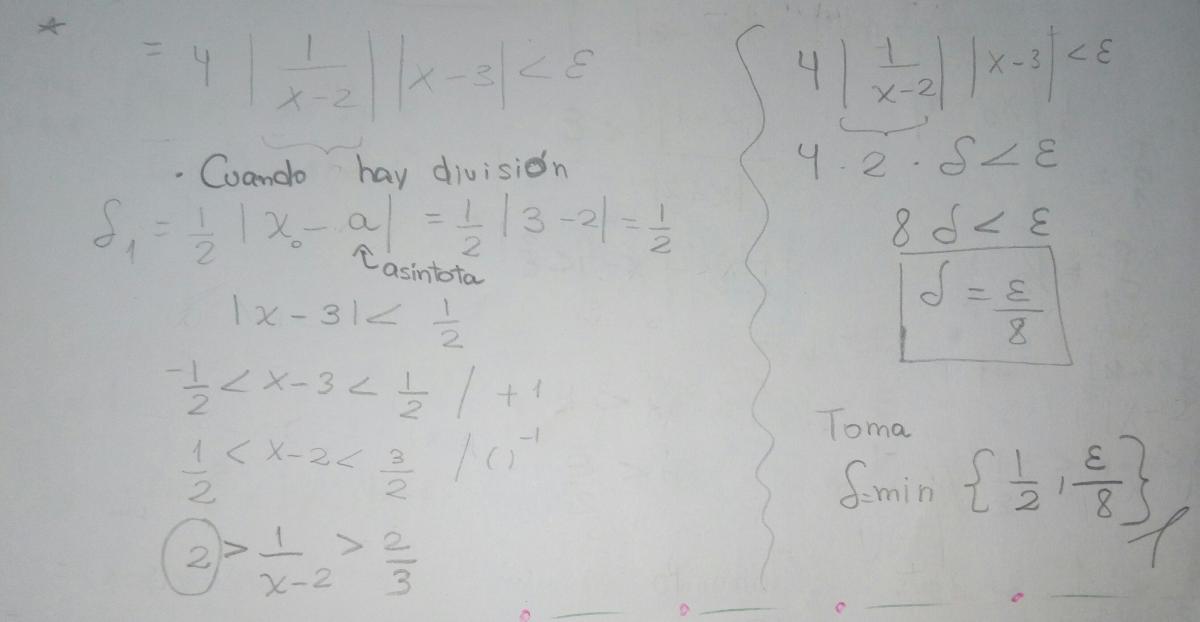 *
= 4 | 1/(x-2) | |x-3| < ε
· Cuando hay división
δ₁ = 1/2 |x₀ - a| = 1/2 |3-2| = 1/2
↑ asíntota
|x-3| < 1/2
-1/2 < x-3 < 1/2 / +1
1/2 < x-2 < 3/2 / ( )⁻¹
2 > 1/(x-2) > 2/3
4 | 1/(x-2) | |x-3| < ε
4 · 2 · δ < ε
8 δ < ε
δ = ε/8
Toma
δ=min { 1/2 , ε/8 }